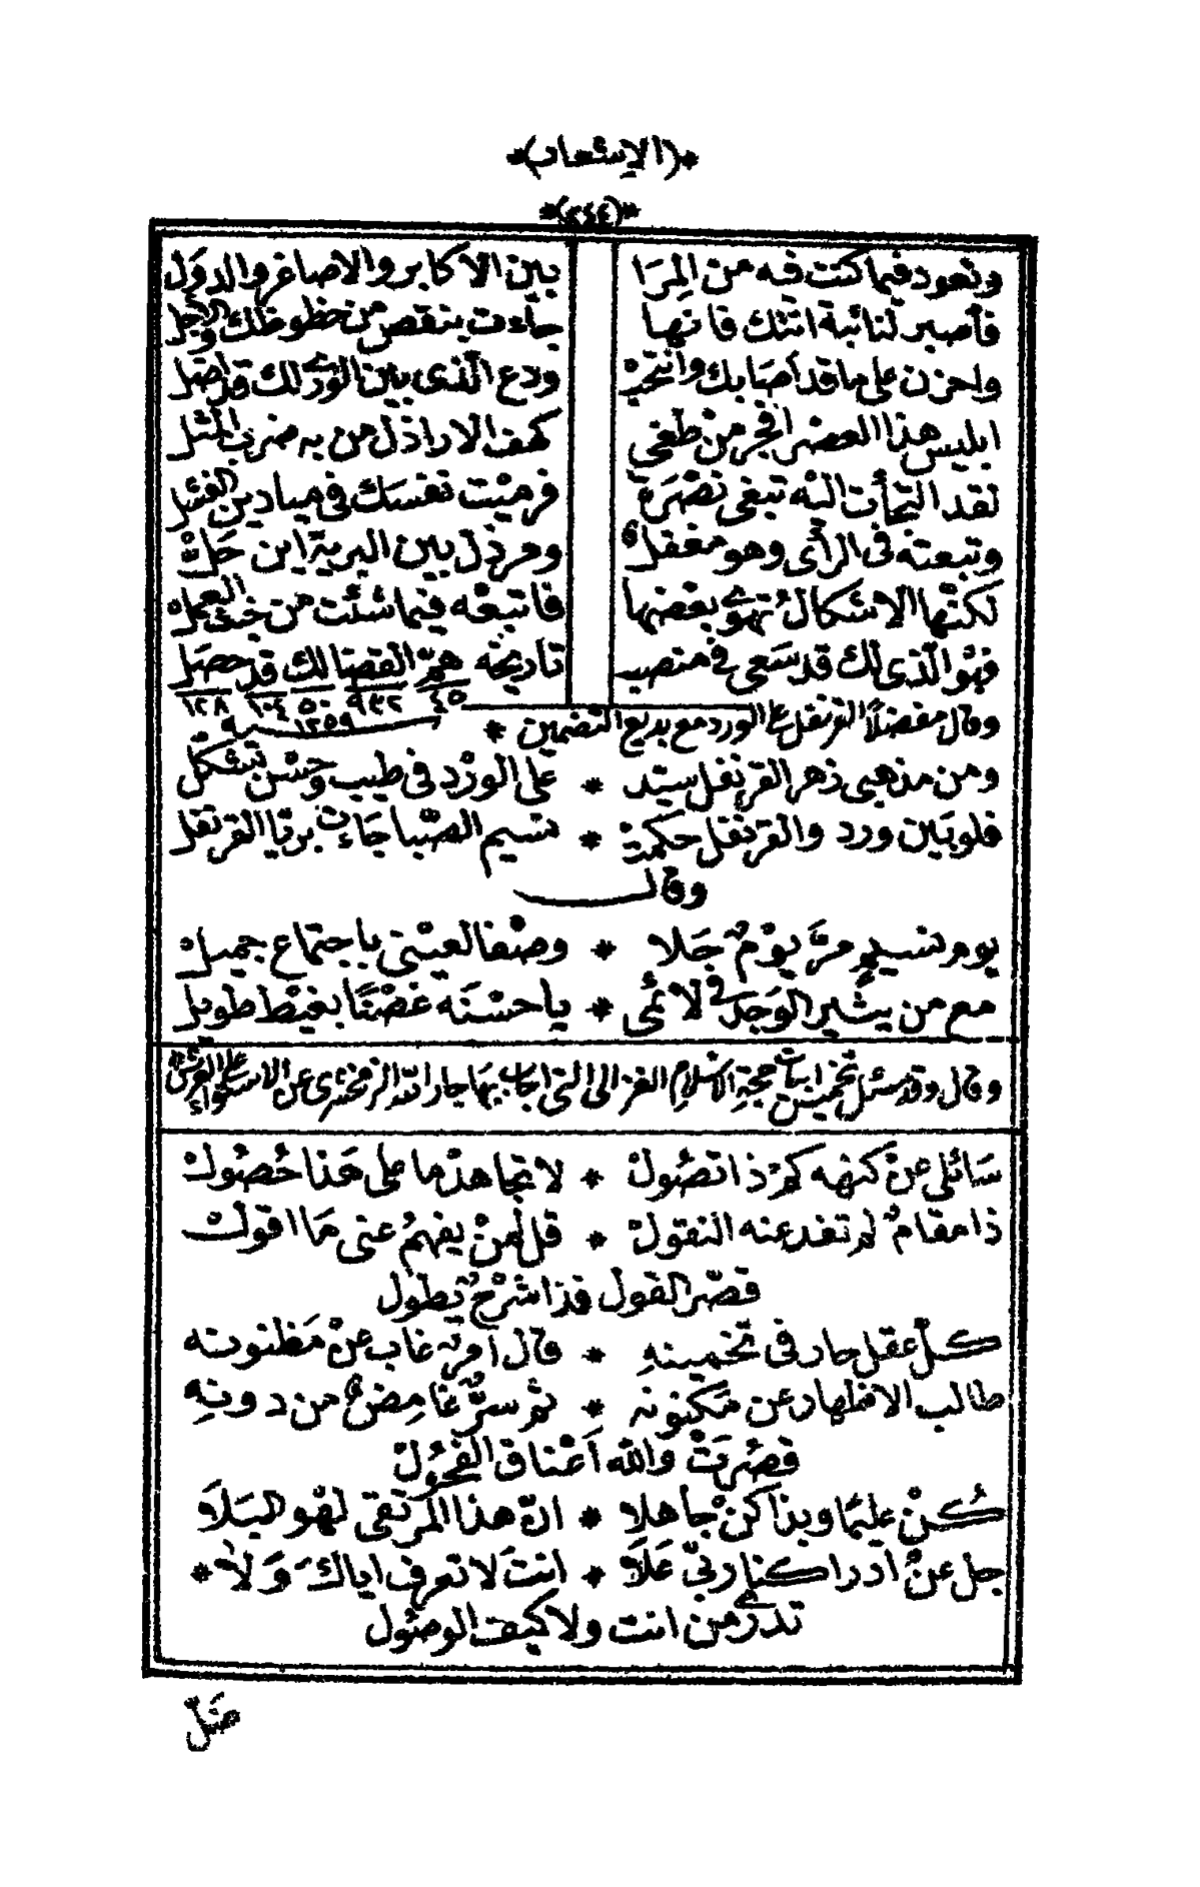 *(الاشعار)*
*(٢٤٤)*
وتعود فيما كنت فيه من المرا بين الاكابر والاصاغر والدول
فاصبر لنائبة اتتك فانها جاءت بنقص من حظوظك والاجل
واحزن على ما قد أصابك وانتحب ودع الذى بين الورى لك قد اضل
ابليس هذا العصر افجر من طغى كهف الاراذل من به ضرب المثل
لقد التجأت اليه تبغى نصرة فرميت نفسك فى ميادين الفشل
وتبعته فى الرأى وهو مغفل ومرذل بين البرية اين حل
لكنها الاشكال تهوى بعضها فاتبعه فيما شئت من العمل
فهو الذى لك قد سعى فى منصب تاريخه هم القضا لك قد حصل
٤٥ ٩٣٢ ٥٠ ١٠٤ ١٢٨
١٢٥٩
وقال مفضلا القرنفل على الورد مع بديع التضمين *
ومن مذهبى زهر القرنفل سيد * على الورد فى طيب وحسن تشكل
فلو بين ورد والقرنفل حكمت * نسيم الصبا جاءت بريا القرنفل
وقال
يوم نسيم مر يوم حلا * وصفا لعيشى باجتماع جميل
مع من يشير الوجد فى لائمى * يا حسنه غصنا بغيظ طويل
وقال وقد سئل تخميس ابيات حجة الاسلام الغزالى التى اجاب بها جار الله الزمخشرى عن الاستواء على العرش
سائلى عن كنهه كم ذا تصول * لا تجاهد ما على هذا حصول
ذا مقام لم تفد عنه النقول * قل لمن يفهم عنى ما اقول
قصر القول فذا شرح يطول
كل عقل حار فى تخمينه * قال امر ته غاب عن مظنونه
طالب الاظهار عن مكنونه * ثم سر غامض من دونه
قصرت والله أعناق الفحول
كن عليما وبذا كن جاهلا * ان هذا المرتقى لهو البلا
جل عن ادراكنا ربى علا * انت لا تعرف اياك ولا *
تدرى من انت ولا كيف الوصول
ضل